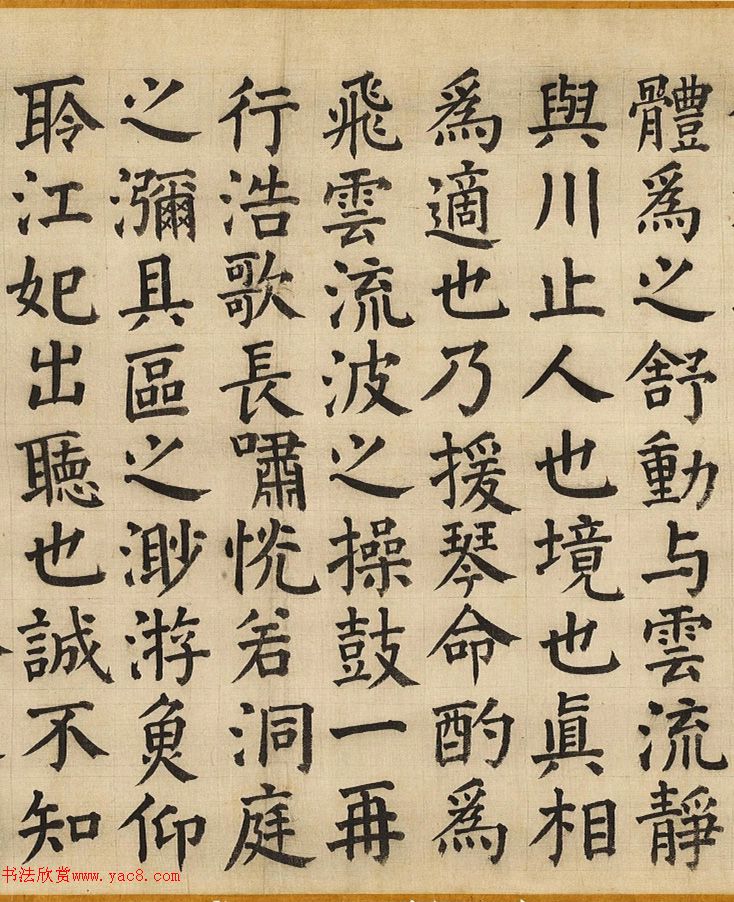 體爲之舒動与雲流靜
與川止人也境也眞相
爲適也乃援琴命酌爲
飛雲流波之操鼓一再
行浩歌長嘯恍若洞庭
之瀰具區之渺游魚仰
聆江妃出聴也誠不知
书法欣赏www.yac8.com